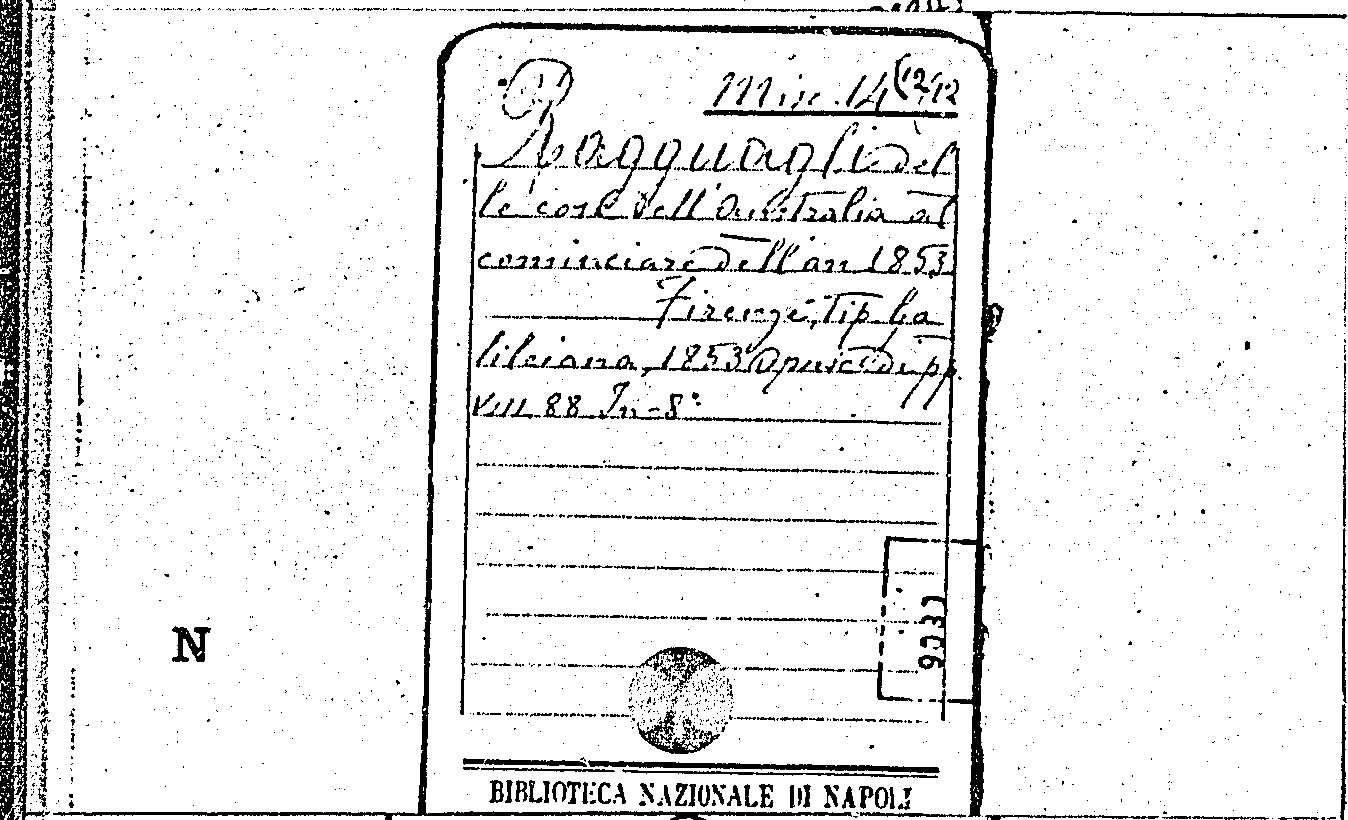 Misc. 14 (12
Ragguagli del
le cose dell'Australia al
cominciare dell'an 1853
Firenze, Tip Ga
lileiana, 1853 Opusc di pp.
VIII 88 In-8°
N
BIBLIOTECA NAZIONALE DI NAPOLI